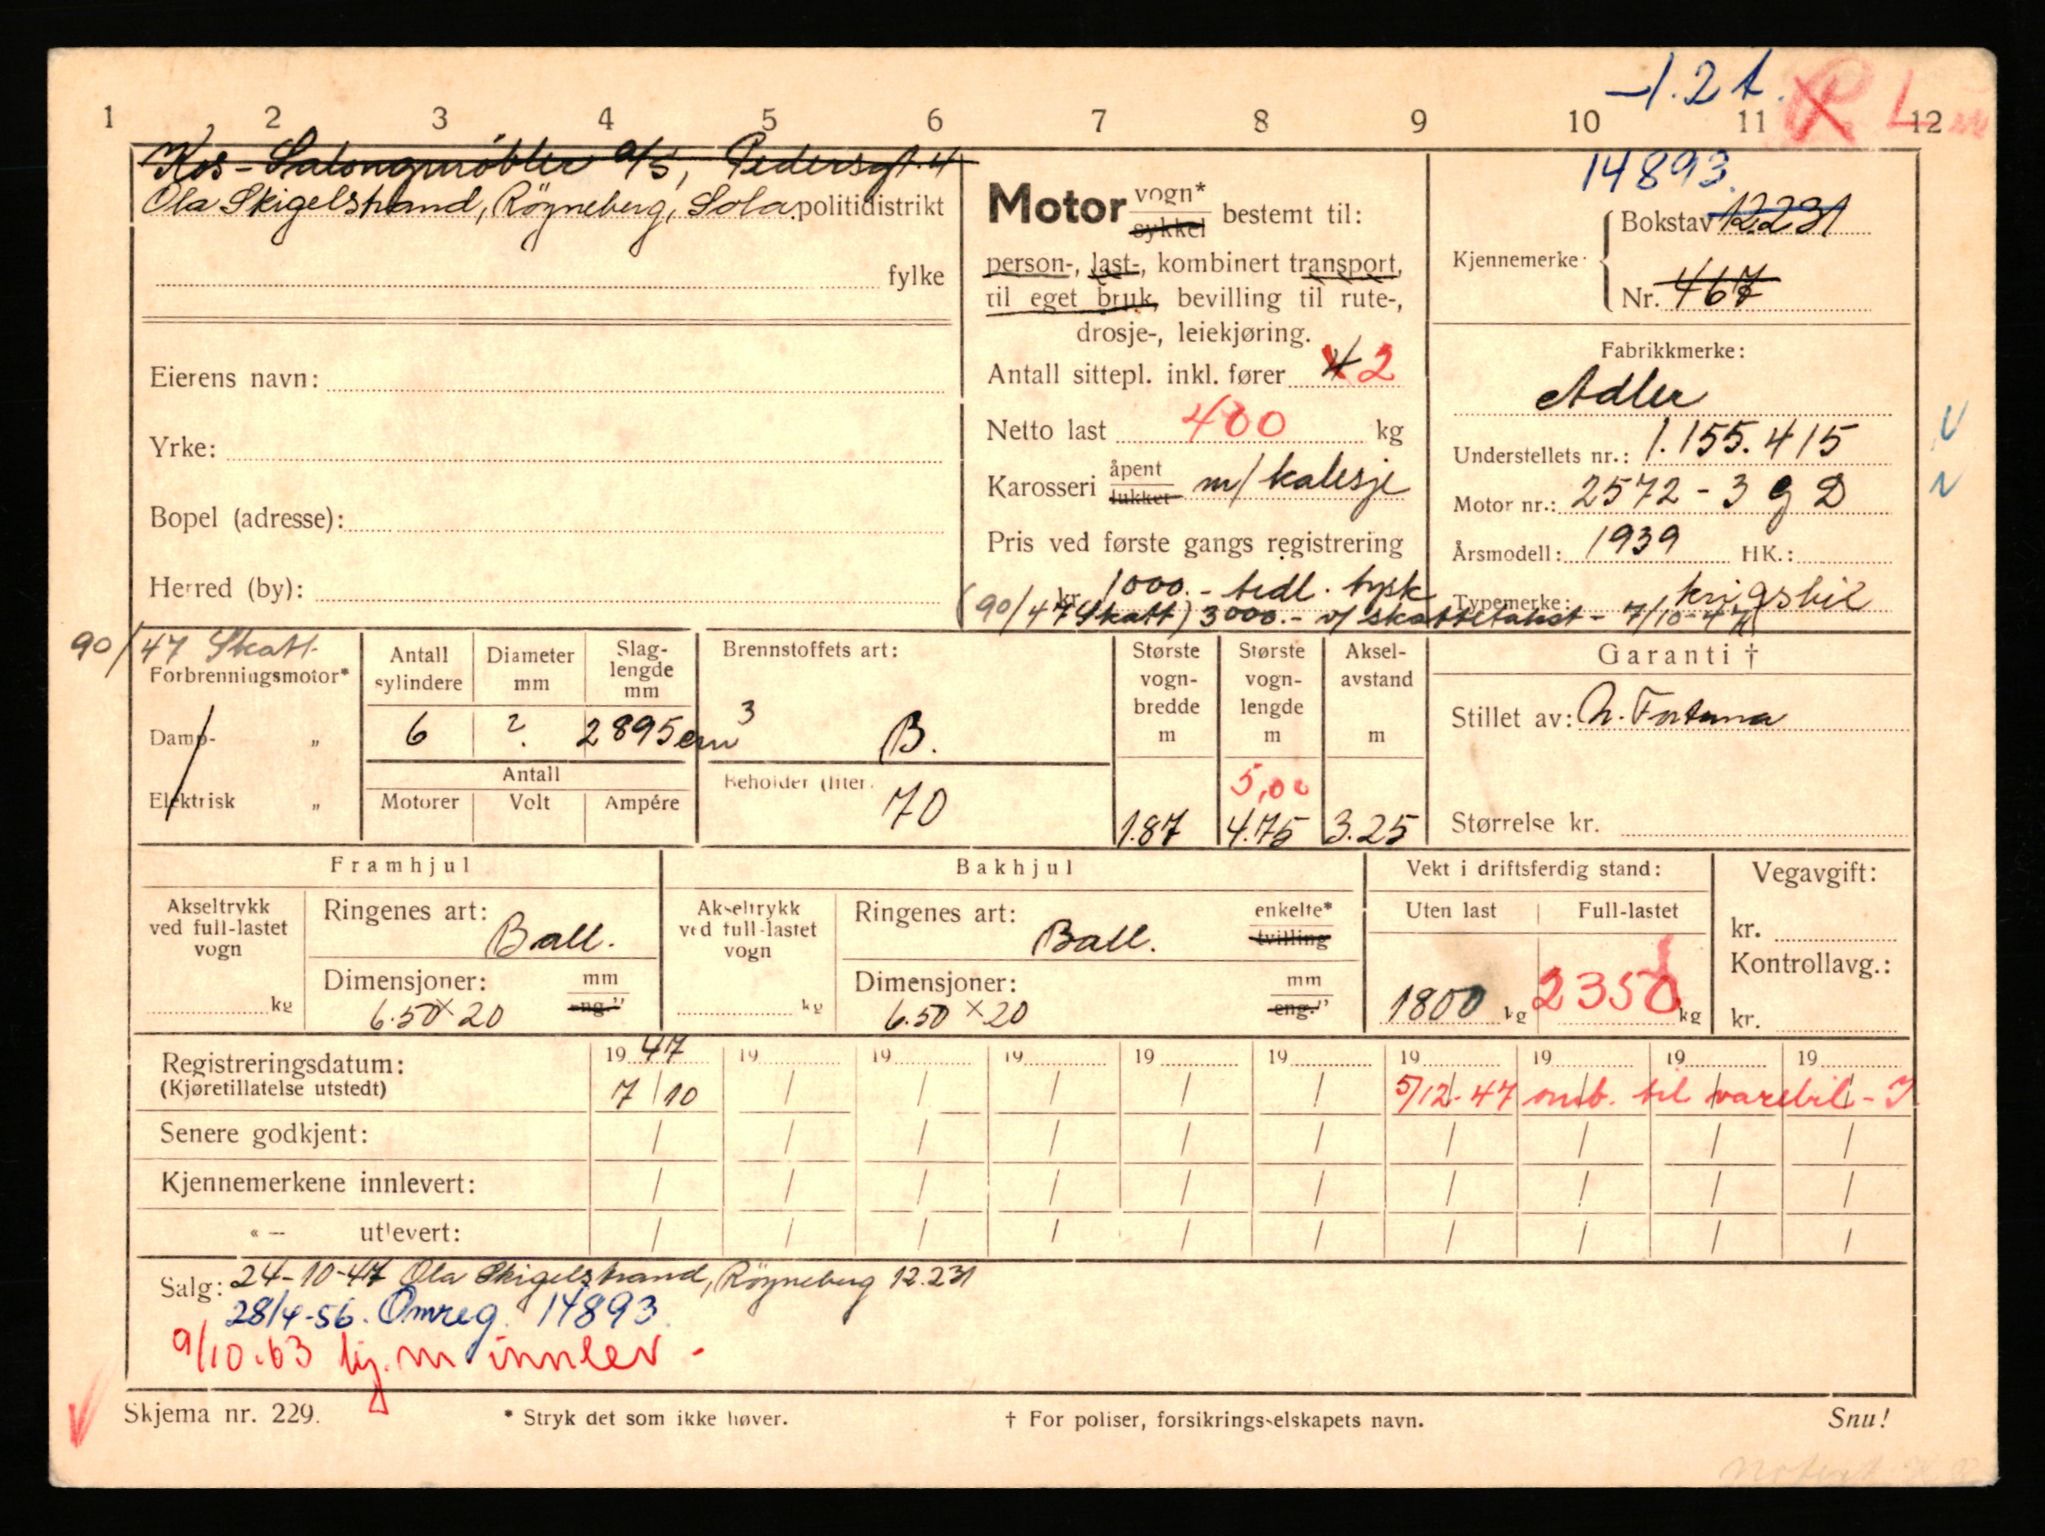 -1.2 t. L
1 2 3 4 5 6 7 8 9 10 11 12
Kos-Salongmöbler a/s, Pedersgt. 4
Ola Skigelstrand, Röyneberg, Sola. politidistrikt
fylke
Eierens navn:
Yrke:
Bopel (adresse):
Herred (by):
Motor vogn* sykkel bestemt til:
person-, last-, kombinert transport,
til eget bruk, bevilling til rute-,
drosje-, leiekjøring.
Antall sittepl. inkl. fører 4 2
Netto last 400 kg
Karosseri åpent lukket m/ kalesje
Pris ved første gangs registrering
kr. 1000.- bedl. tysk
(90/47 Skatt) 3000.- v/ skattetakst - 7/10-47
14893.
Kjennemerke Bokstav 12231
Nr. 467
Fabrikkmerke:
Adler
Understellets nr.: 1.155.415
Motor nr.: 2572-3 g D
Årsmodell: 1939 HK.:
Typemerke: krigsbil
90/47 Skatt
Forbrenningsmotor*
Damp- „
Elektrisk „
Antall sylindere Diameter mm Slag-lengde mm
6 ? 2895 cm3
Antall
Motorer Volt Ampére
Brennstoffets art:
B.
Beholder (liter.
70
Største vogn-bredde m
1.87
Største vogn-lengde m
5,00
4.75
Aksel-avstand m
3.25
Garanti †
Stillet av: N. Fortuna
Størrelse kr.
Framhjul
Akseltrykk ved full-lastet vogn
kg
Ringenes art: Ball.
Dimensjoner: mm eng."
6.50 x 20
Bakhjul
Akseltrykk ved full-lastet vogn
kg
Ringenes art: Ball. enkelte* tvilling
Dimensjoner: mm eng."
6.50 x 20
Vekt i driftsferdig stand:
Uten last Full-lastet
1800 kg 2350 kg
Vegavgift:
kr.
Kontrollavg.:
kr.
Registreringsdatum: 19 47 19 19 19 19 19 19 19 19 19
(Kjøretillatelse utstedt) 7/10 / / / / / 5/12-47 omb. til varebil -
Senere godkjent: / / / / / / / / / /
Kjennemerkene innlevert: / / / / / / / / / /
« — utlevert: / / / / / / / / / /
Salg: 24-10-47 Ola Skigelstrand, Röyneberg 12.231
28/4-56. Omreg. 14893.
9/10-63 kj. m innlev -
Skjema nr. 229. * Stryk det som ikke høver. † For poliser, forsikrings-elskapets navn. Snu!